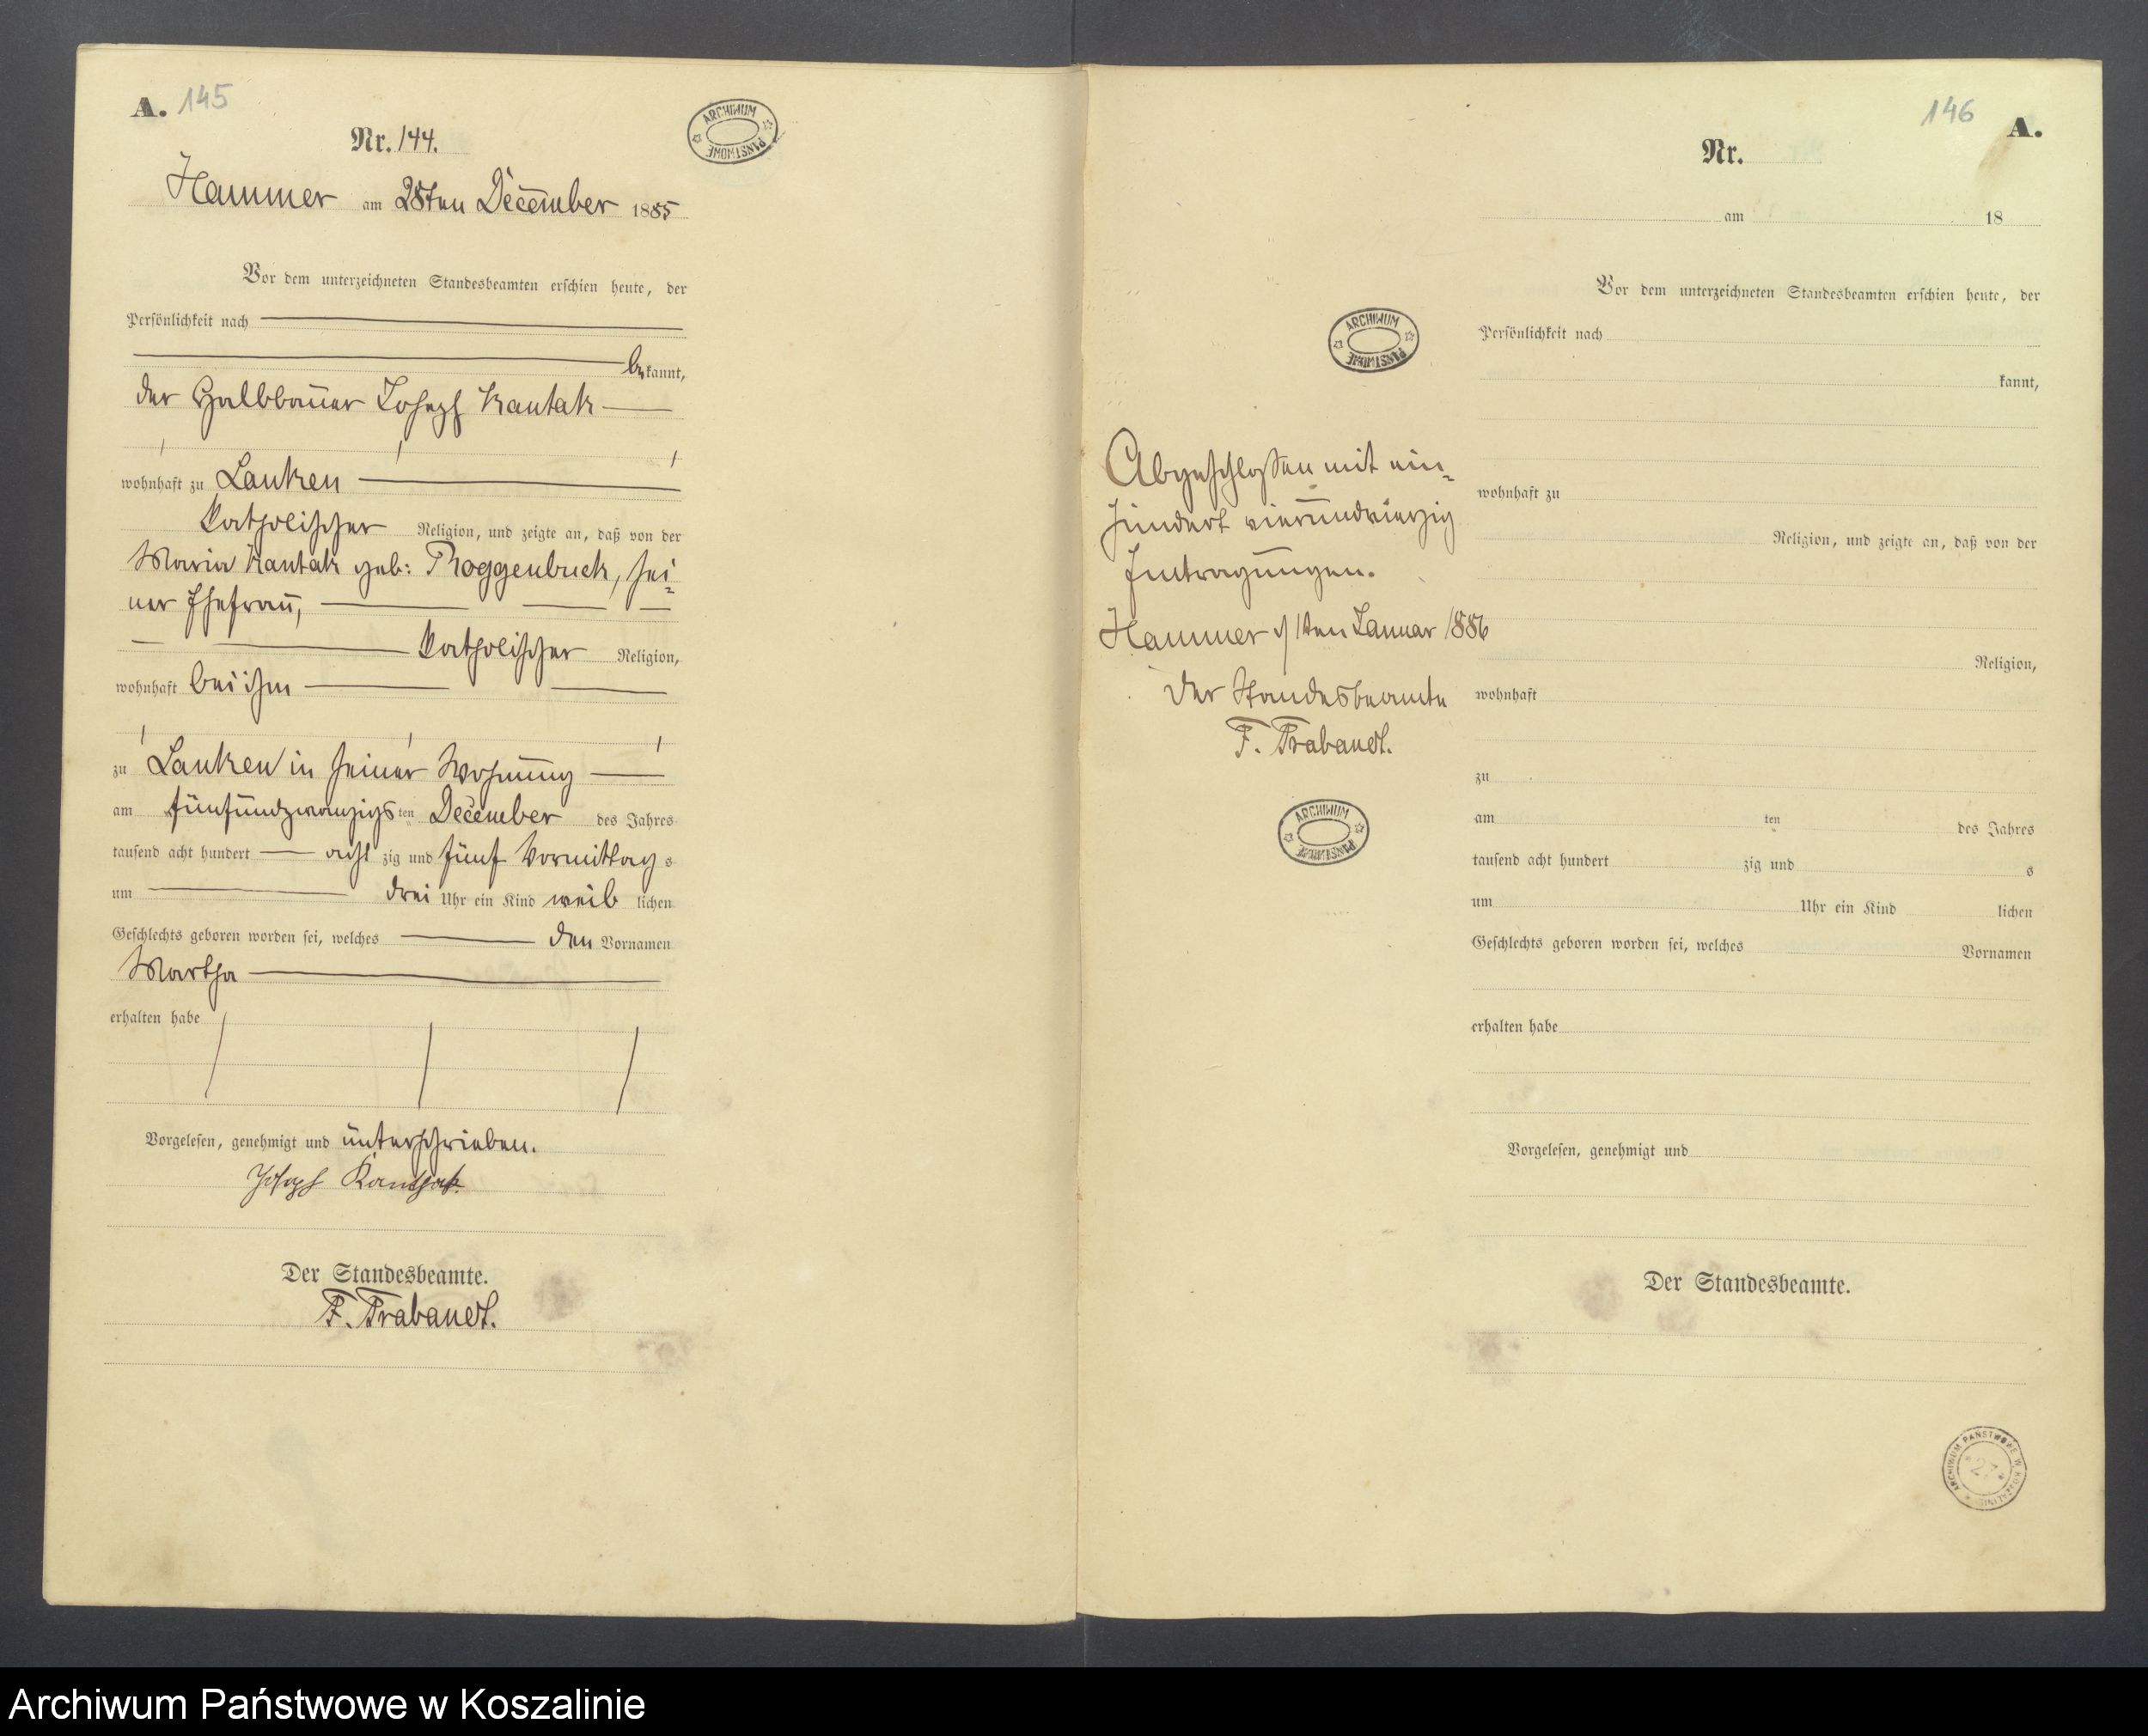 A. 145
Nr. 144.
Hammer am 28ten December 1885
Vor dem unterzeichneten Standesbeamten erschien heute, der
Persönlichkeit nach
bekannt,
der Halbbauer Joseph Kantak
wohnhaft zu Lanken
katholischer Religion, und zeigte an, daß von der
Maria Kantak geb: Roggenbuck, sei=
ner Ehefrau,
katholischer Religion,
wohnhaft bei ihm
zu Lanken in seiner Wohnung
am fünfundzwanzigsten December des Jahres
tausend acht hundert achtzig und fünf Vormittags
um drei Uhr ein Kind weiblichen
Geschlechts geboren worden sei, welches den Vornamen
Martha
erhalten habe
Vorgelesen, genehmigt und unterschrieben.
Joseph Kantak.
Der Standesbeamte.
F. Prabandt.
ARCHIWUM PAŃSTWOWE
146 A.
Nr.
am 18
Vor dem unterzeichneten Standesbeamten erschien heute, der
Persönlichkeit nach
kannt,
wohnhaft zu
Religion, und zeigte an, daß von der
Religion,
wohnhaft
zu
am ten des Jahres
tausend acht hundert zig und s
um Uhr ein Kind lichen
Geschlechts geboren worden sei, welches Vornamen
erhalten habe
Vorgelesen, genehmigt und
Der Standesbeamte.
ARCHIWUM PAŃSTWOWE
Abgeschlossen mit ein=
hundert vierundvierzig
Eintragungen.
Hammer d 1ten Januar 1886
Der Standesbeamte
F. Prabandt.
ARCHIWUM PAŃSTWOWE
ARCHIWUM PAŃSTWOWE W KOSZALINIE
27
Archiwum Państwowe w Koszalinie